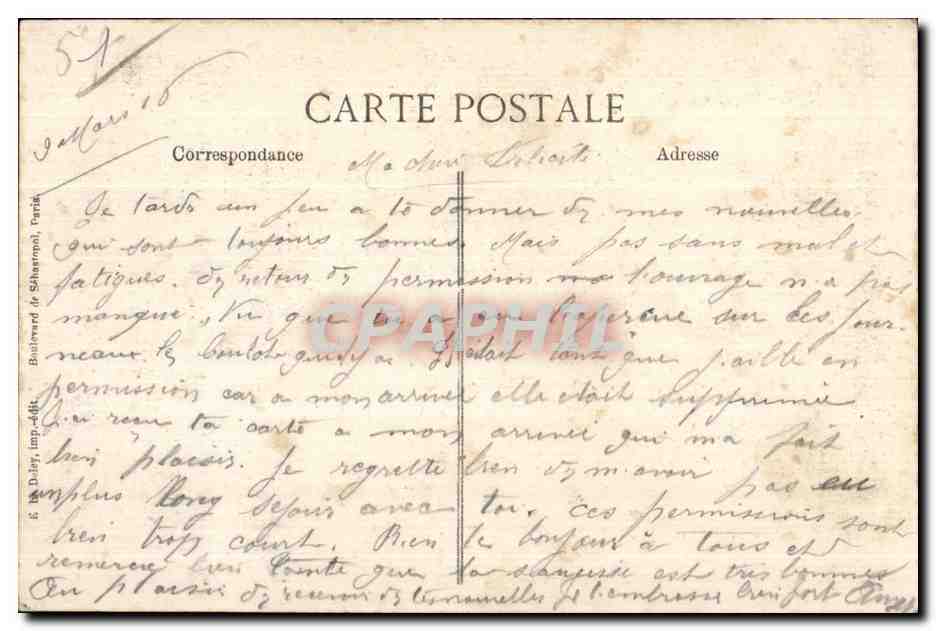 51
9 Mars 16
CARTE POSTALE
Correspondance
Adresse
Ma chère
Je tarde un peu a te donner de mes nouvelles
qui sont toujours bonnes. Mais pas sans mal et
fatigues. De retour de permission l'ouvrage n a pas
manqué. Vu que tu a eu l'aperçue sur les jour-
neaux le boulot qu'il y a. Il était tant que j'aille en
permission car a mon arrivé elle était supprimé
J'ai reçu ta carte a mon arrivée qui ma fait
bien plaisir. Je regrette bien de m avoir pas eu
un plus long sejour avec toi. Ces permissions sont
bien trop court. Bien le bonjour à tous et
remercie bien tante que la saucisse est très bonnes
Au plaisir de recevoir de tes nouvelles je t'embrasse bien fort
E. Le Deley, imp.-édit. Boulevard de Sébastopol, Paris.
CPAPHIL